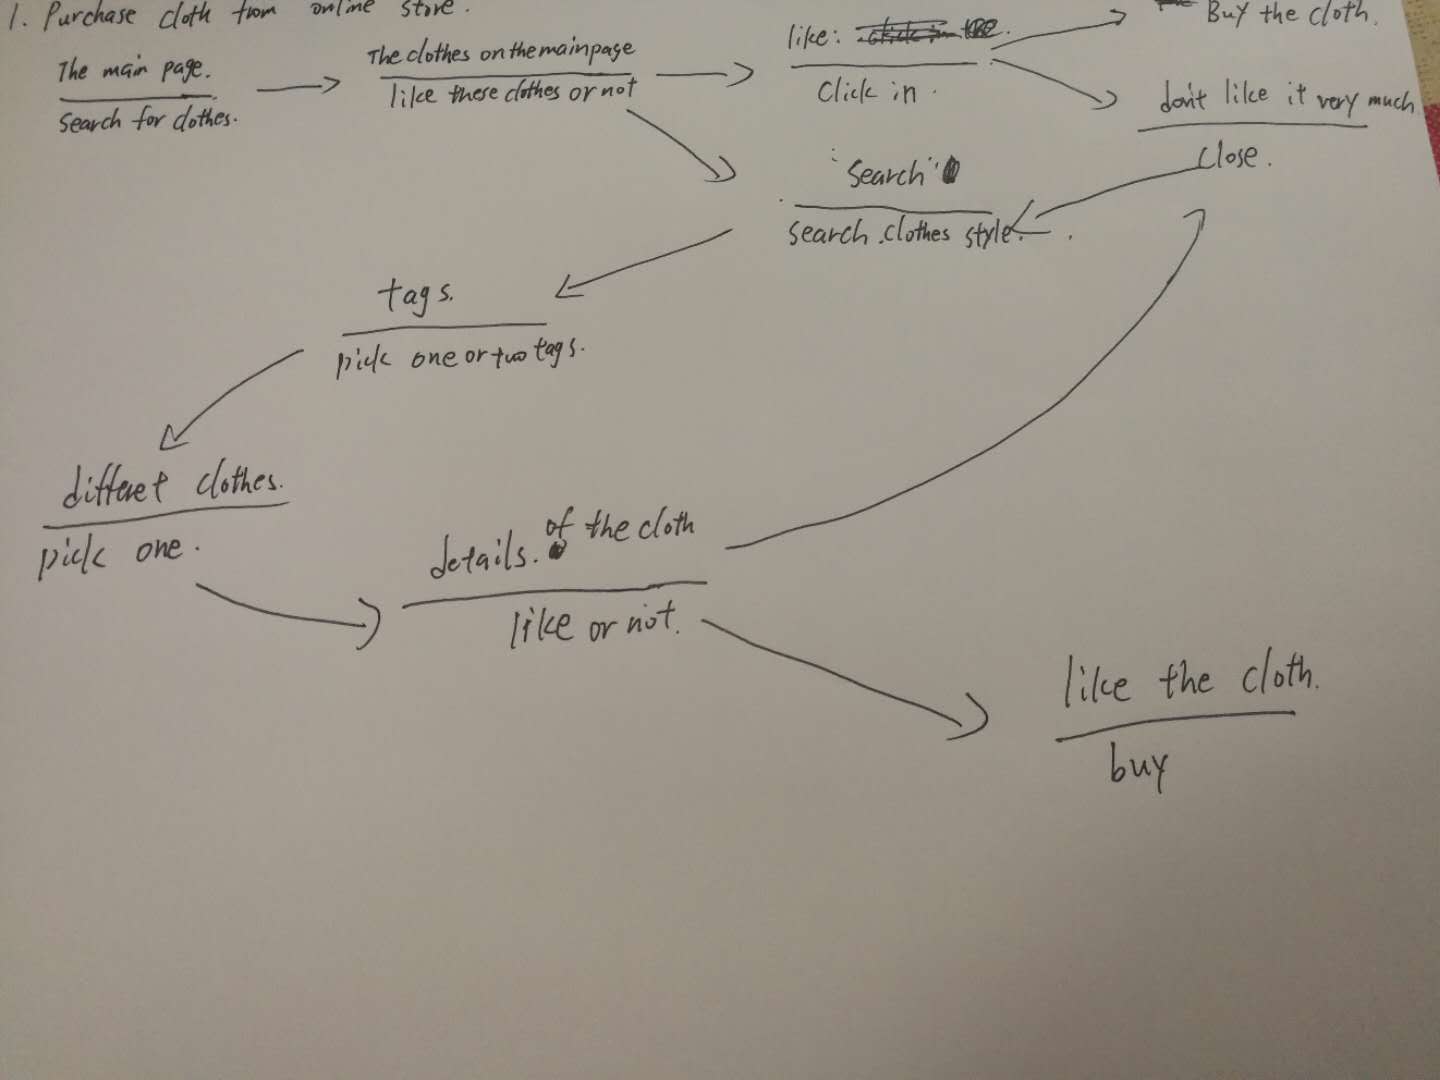 1. Purchase cloth from online store.
The main page.
Search for clothes.
The clothes on the mainpage
like these clothes or not
like:
Click in.
Buy the cloth.
don't like it very much
Close.
"Search"
search clothes style.
tags.
pick one or two tags.
differet clothes.
pick one.
details. of the cloth
like or not.
like the cloth.
buy